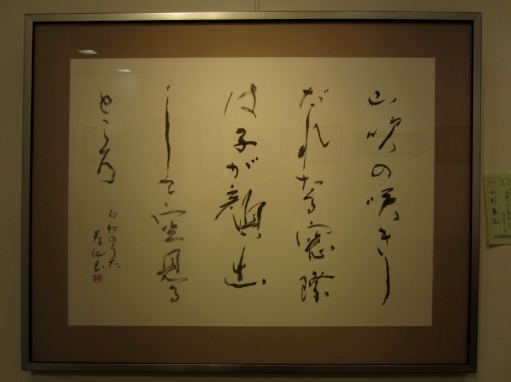 山吹の咲きし
だれたる窓際
は子が顔出
して空見る
ところ
白秋のうた